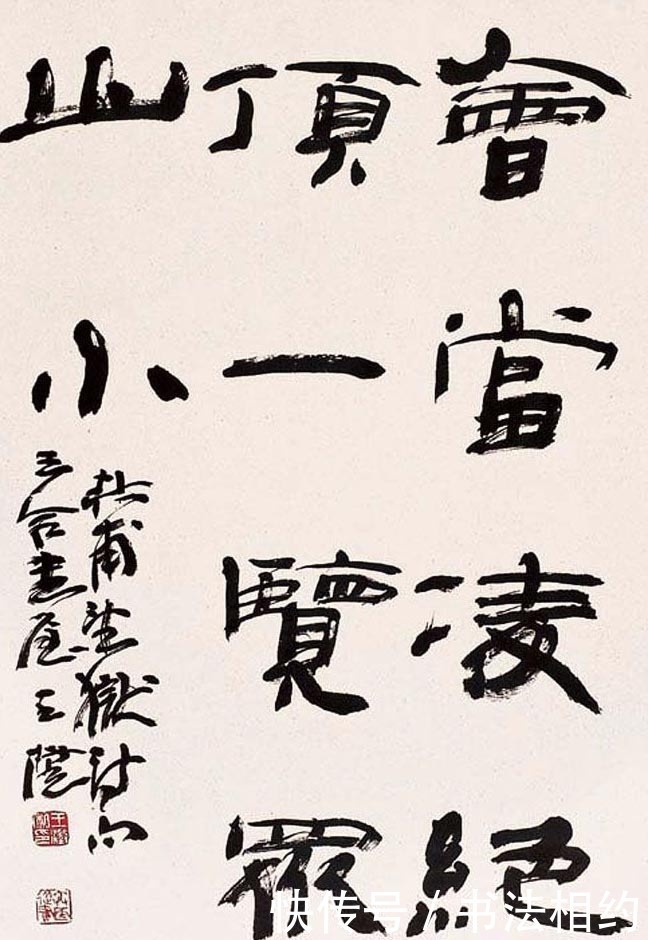 會當凌絕
頂一覽眾
山小
杜甫望嶽詩句
三合書屋王隱
快传号/书法相约